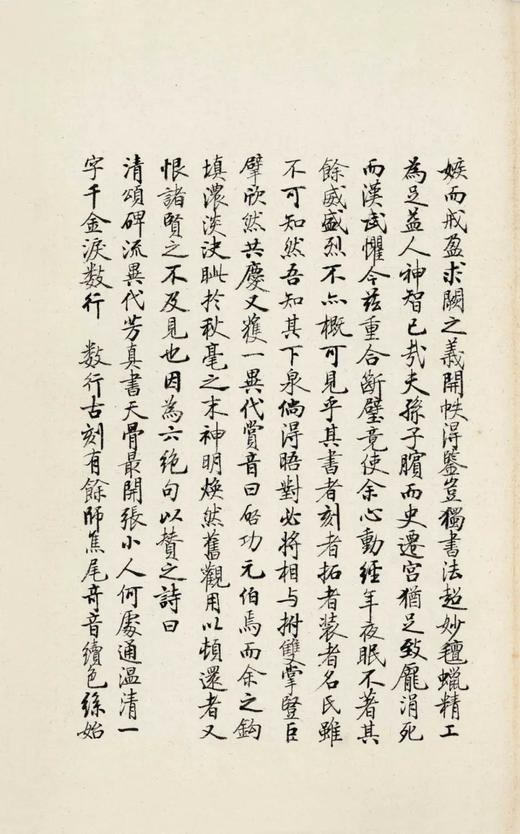 嫉而戒盈求闕之義開帙得鑒豈獨書法超妙氊蠟精工
為足益人神智已哉夫孫子臏而史遷宮猶足致龐涓死
而漢武懼今茲重合斷璧竟使余心動經年夜眠不著其
餘威盛烈不亦概可見乎其書者刻者拓者装者名氏雖
不可知然吾知其下泉倘得晤對必將相与拊雙掌豎巨
擘欣然共慶又獲一異代賞音曰啟功元伯焉而余之鈎
填濃淡決眦於秋毫之末神明煥然舊觀用以頓還者又
恨諸賢之不及見也因為六絕句以贊之詩曰
清頌碑流異代芳真書天骨最開張小人何處通温清一
字千金淚数行　数行古刻有餘師焦尾奇音續色絲始